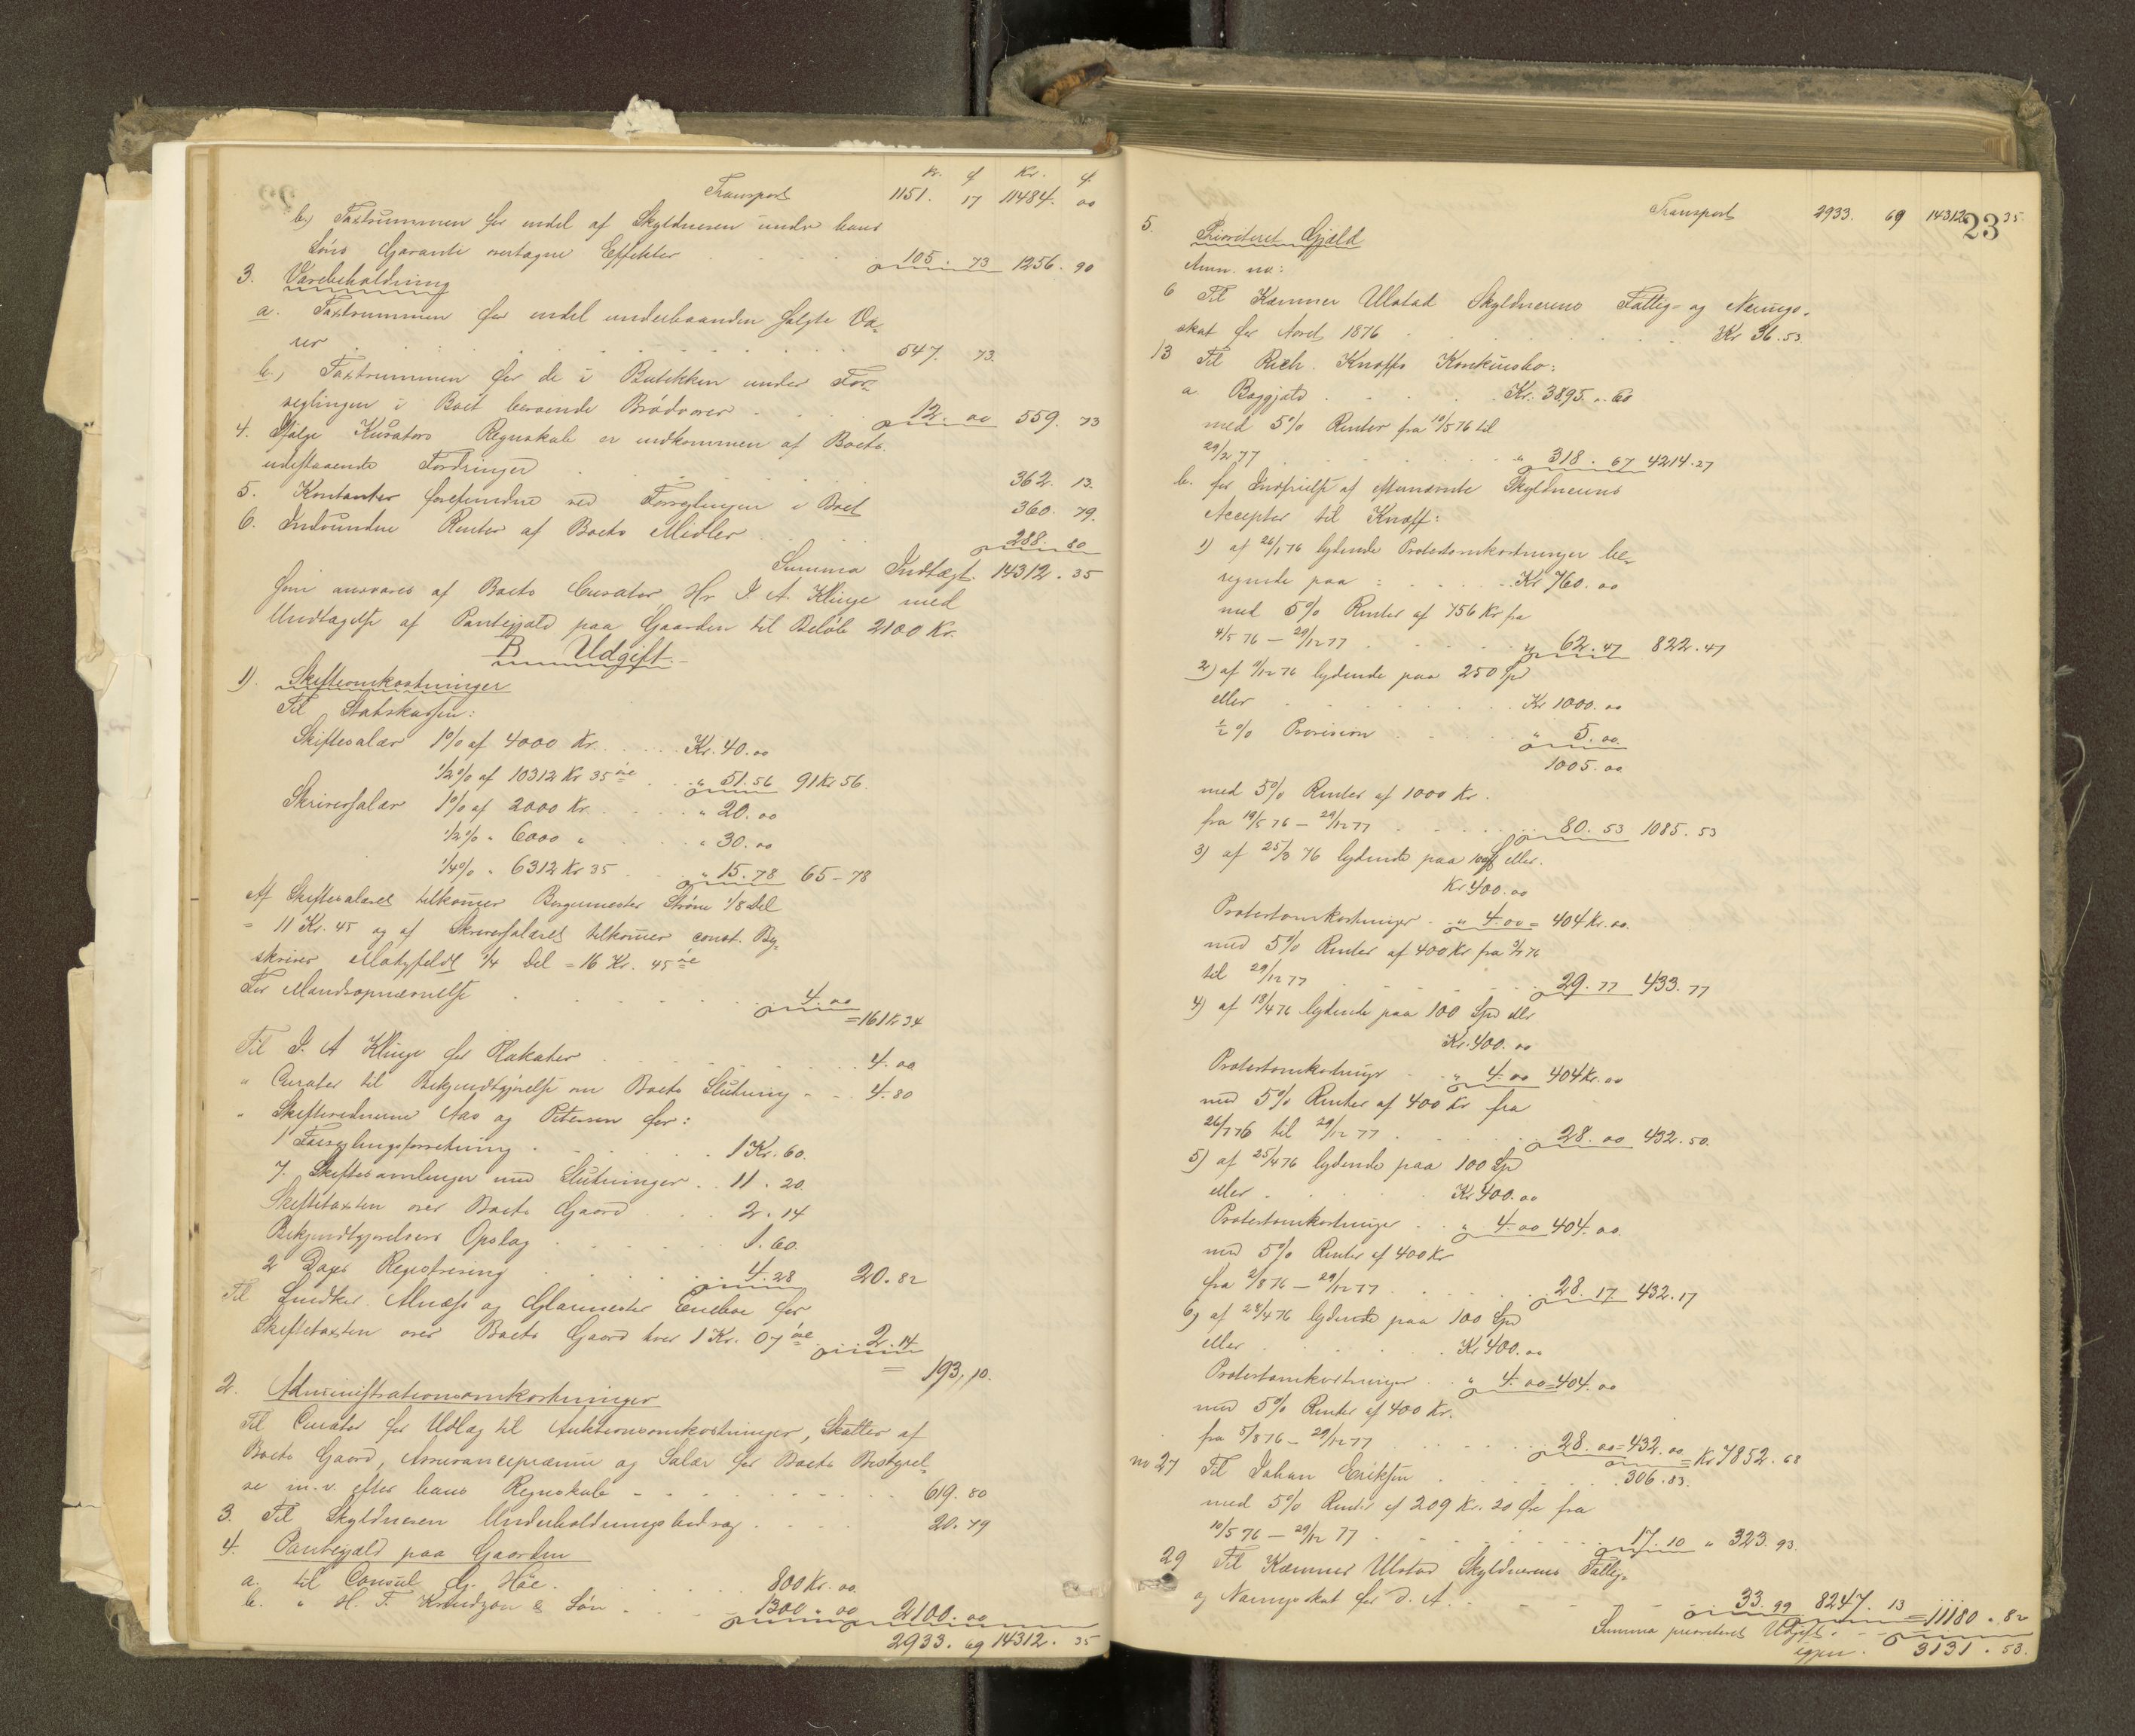 Kr. ø Kr. ø
Transport 1151. 17 11484. 00
b.) Taxtsummen for endel af Skyldneren under hans
Søns Garanti overtagne Effekter 105. 73 1256. 90
3. Varebeholdning
a. Taxtsummen for endel underhaanden solgte Va-
rer 547. 73.
b., Taxtsummen for de i Butikken under For-
seglingen i Boet beroende Brødvarer 12. 00 559. 73
4. Ifølge Kurators Regnskab er indkommen af Boets
udestaaende Fordringer 362. 13.
5. Kontanter forefundne ved Forseglingen i Boet 360. 79.
6. Indvundne Renter af Boets Midler 288. 80
Summa Indtægt. 14312. 35
som ansvares af Boets Curator Hr I. A. Klinge med
Undtagelse af Pantegjæld paa Gaarden til Beløb 2100 Kr.
B Udgift.
1). Skifteomkostninger
Til Statskassen:
Skiftesalær 1% af 4000 Kr. Kr. 40. 00
1/2% af 10312 Kr 35 øre " 51. 56 91 Kr 56.
Skriversalær 1% af 2000 Kr. " 20. 00
1/2% " 6000 " " 30. 00
1/4% " 6312 Kr 35 " 15. 78 65-78
Af Skiftesalæret tilkommer Borgermester Strøm 1/8 Del
= 11 Kr. 45 og af Skriversalæret tilkommer const. By-
skriver Matzfeldt 1/4 Del = 16 Kr. 45 øre
For Mandsopnævnelse 4. 00
= 161 Kr 34
Til I. A Klinge for Plakater 4. 00
" Curator til Bekjendtgjørelse om Boets Slutning 4. 80
" Skiftevidnerne Aas og Petersen for:
1 Forseglingsforretning 1 Kr. 60.
7. Skiftesamlinger med Slutninger 11. 20
Skiftetaxten over Boets Gaard 2. 14
Bekjendtgjørelsers Opslag 1. 60.
2 Dages Registrering 4. 28 20. 82
Til Snedker Alnæss og Glarmester Eneboe for
Skiftetaxten over Boets Gaard hver 1 Kr. 07 øre 2. 14
= 193, 10.
2. Administrationsomkostninger
Til Curator for Udlæg til Auktionsomkostninger, Skatter af
Boets Gaard, Assurancepræmie og Salær for Boets Bestyrel-
se m. v. efter hans Regnskab 619. 80
3. Til Skyldneren Underholdningsbidrag 20. 79
4. Pantegjæld paa Gaarden
a. til Consul Høe. 800 Kr. 00.
b. " H. F. Knudtzon & Søn 1300. 00 2100. 00
2933. 69 14312. 35
23
Transport 2933. 69 14312 35
5. Prioriteret Gjæld
Anm. no:
6 Til Kæmner Ulstad Skyldnerens Fattig- og Nærings-
skat for Aaret 1876 Kr 36. 53
13 Til Rich. Knoffs Konkursbo:
a Boggjæld Kr. 3895. 60
med 5% Renter fra 10/5 76 til
29/12 77 " 318. 67 4214. 27
b. for Indfrielse af efternævnte Skyldnerens
Accepter til Knoff:
1) af 26/1 76 lydende Protestomkostninger be-
regnede paa : Kr 760. 00
med 5% Renter af 756 Kr fra
4/5 76 - 29/12 77 " 62. 47 822. 47
2) af 9/12 76 lydende paa 250 Spd
eller Kr 1000. 00
1/2 % Provision " 5. 00.
1005. 00
med 5% Renter af 1000 Kr.
fra 19/5 76 - 29/12 77 80. 53 1085. 53
3) af 25/3 76 lydende paa eller.
Kr 400. 00
Protestomkostninger " 4. 00 = 404 Kr. 00.
med 5% Renter af 400 Kr fra 3/7 76
til 29/12 77 29. 77 433. 77
4) af 18/4 76 lydende paa 100 Spd ellr
Kr. 400. 00
Protestomkostninger " 4. 00 404 Kr. 00
med 5% Renter af 400 Kr fra
26/7 76 til 29/12 77 28. 00 432. 50.
5) af 25/4 76 lydende paa 100 Sp
eller Kr 400. 00
Protestomkostninger " 4. 00 404. 00
med 5% Renter af 400 Kr
fra 2/8 76 - 29/12 77 28. 17. 432. 17
6) af 28/4 76 lydende paa 100 Spd
eller Kr 400. 00
Protestomkostninger " 4. 00 = 404. 00
med 5% Renter af 400 Kr.
fra 5/8 76 - 29/12 77 28. 00 = 432. 00 = Kr 7852. 68
no 27 Til Johan Eriksen 306. 83.
med 5% Renter af 209 Kr. 20 Øre fra
10/5 76 - 29/12 77 17. 10 " 323. 93.
29 Til Kæmner Ulstad Skyldnerens Fattig-
og Næringsskat for d. A. 33. 99 8247. 13 = 11180. 82
Summa prioriteret Udgift.
igjen. 3131. 53.